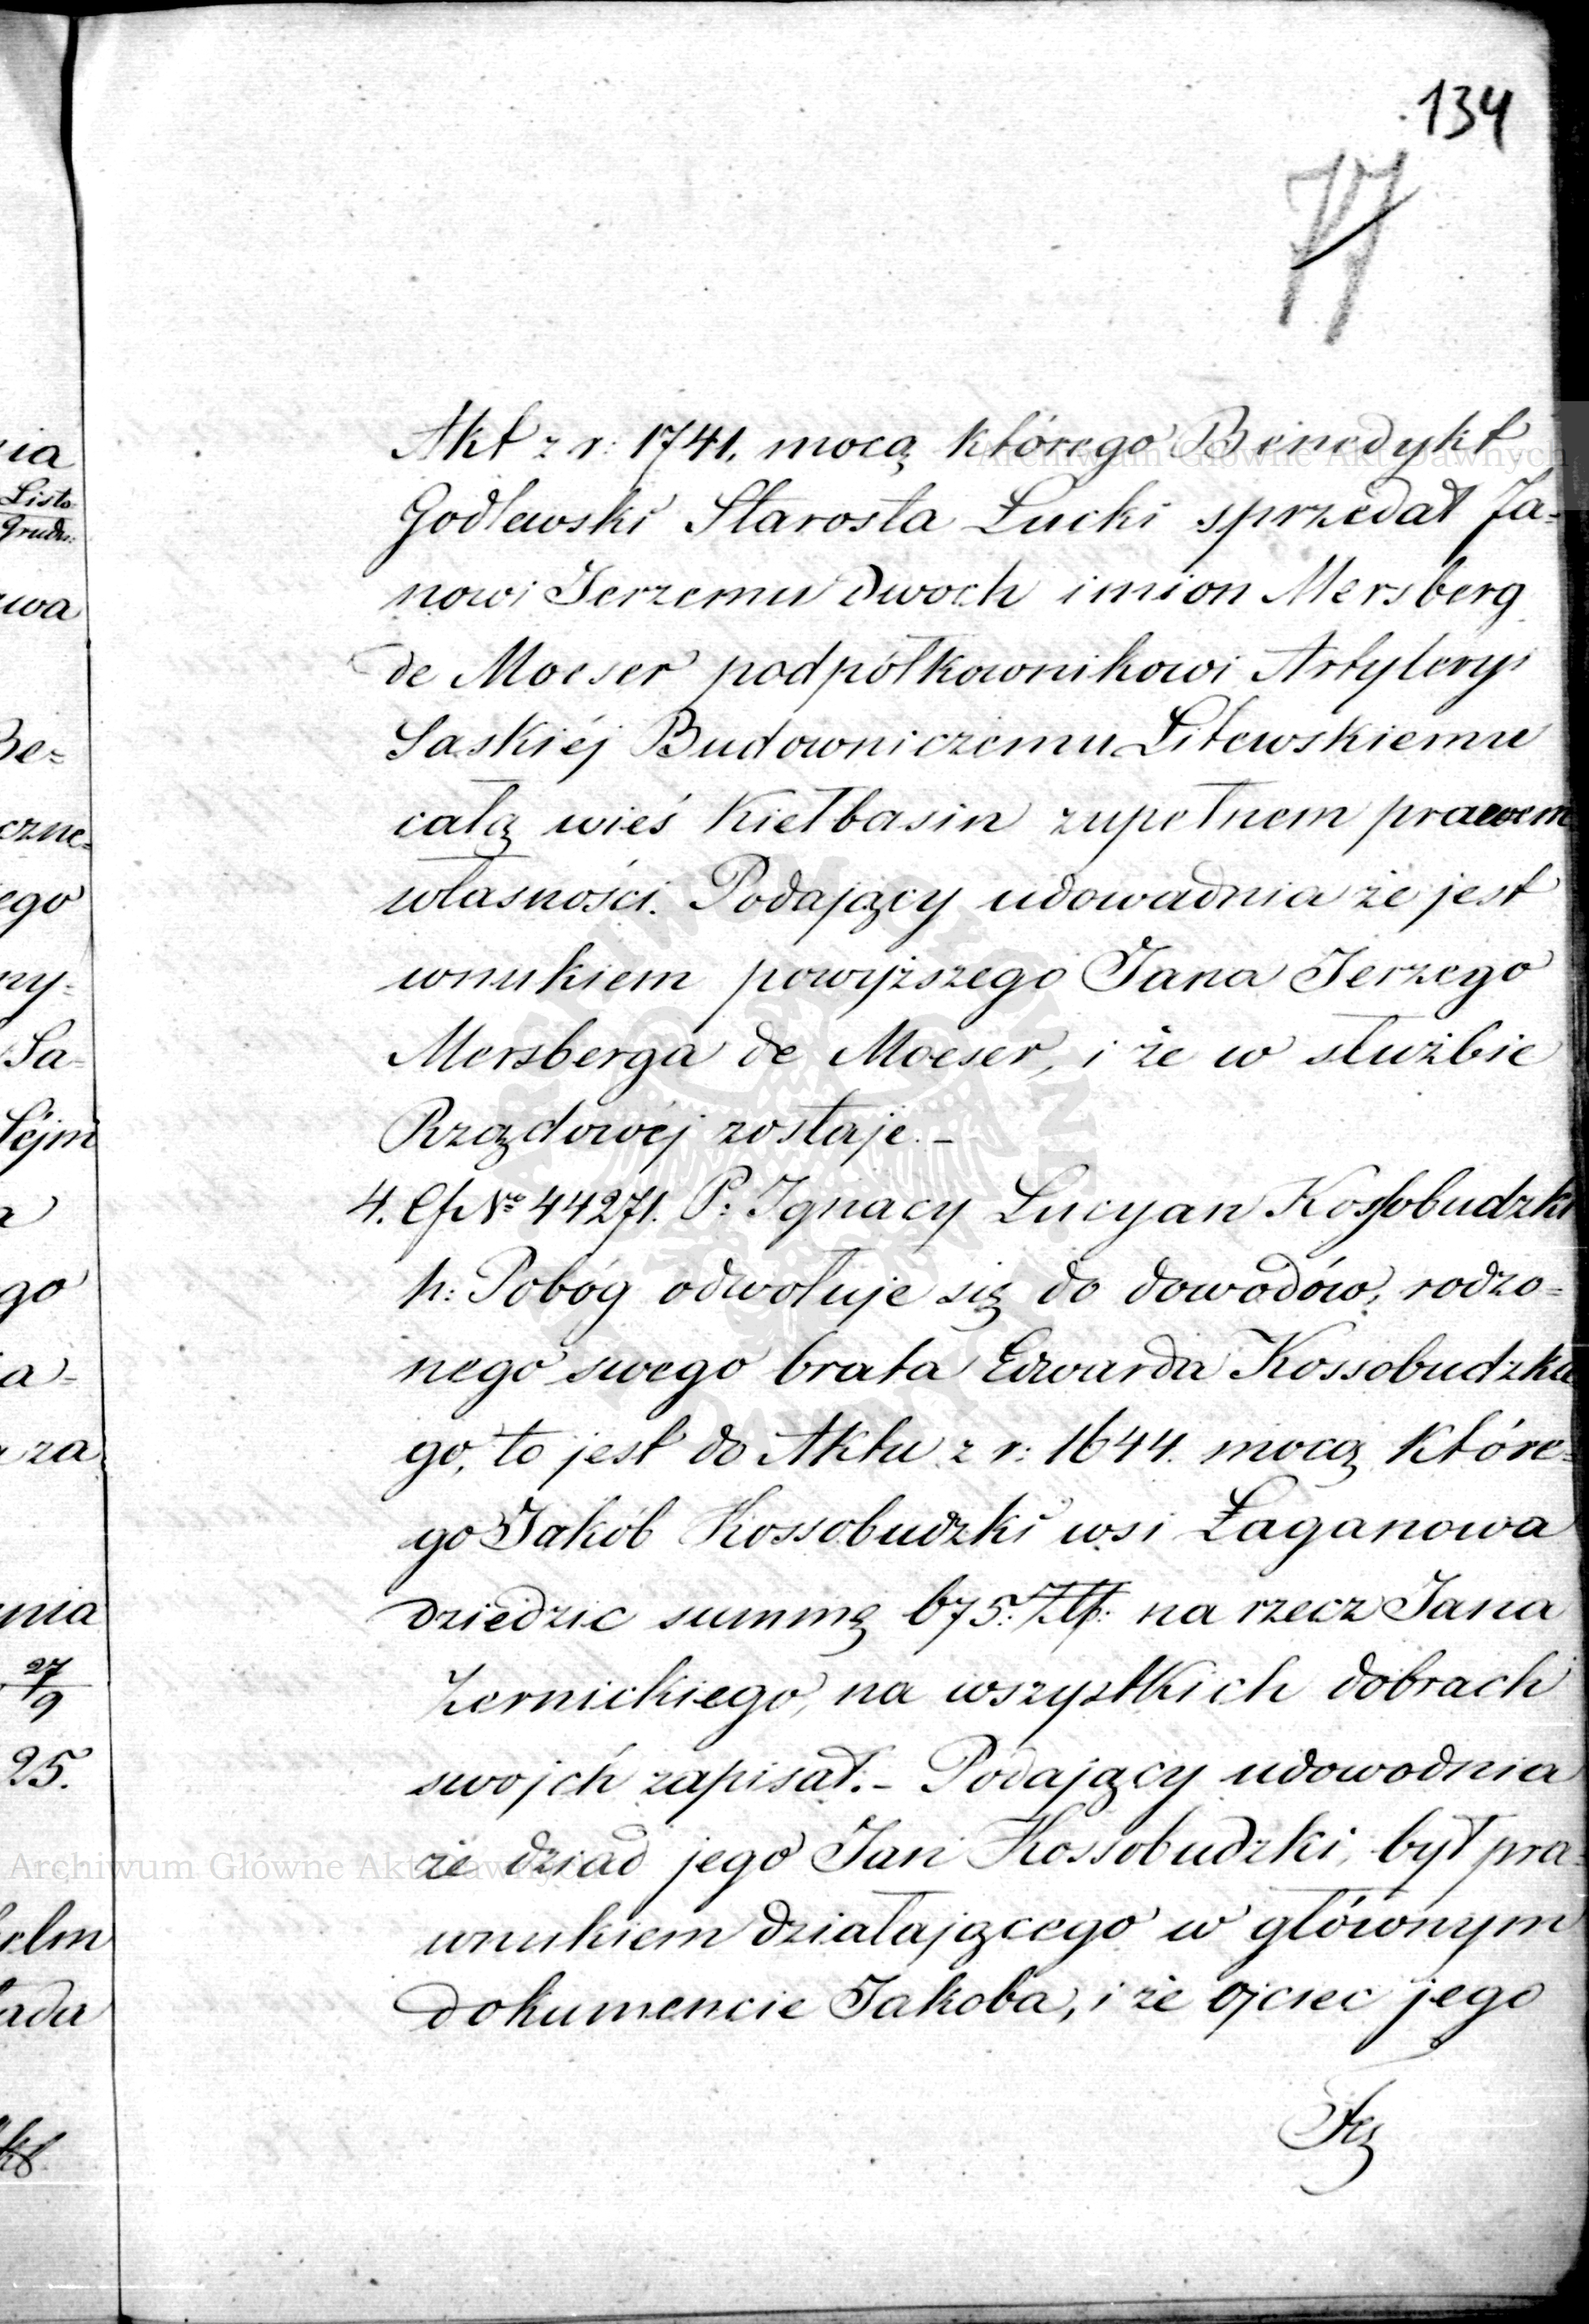 134
77
Akt z r: 1741. mocą którego Benedykt
Godlewski Starosta Łucki sprzedał Ja=
nowi Jerzemu dwoch imion Mersberg
de Moeser podpółkownikowi Artyleryi
Saskiéj Budowniczemu Litewskiemu
całą wieś Kiełbasin zupełnem prawem
własności. Podający udowadnia że jest
wnukiem powyższego Jana Jerzego
Mersberga de Moeser, i że w służbie
Rządowéj zostaje.-
4. Nº 44271. P: Ignacy Lucyan Kossobudzki
h: Pobóg odwołuje się do dowodów, rodzo=
nego swego brata Edwarda Kossobudzkie
go, to jest do Aktu z r: 1644. mocą które=
go Jakób Kossobudzki wsi Łaganowa
dziedzic summę 675. na rzecz Jana
Żernickiego, na wszystkich dobrach
swojch zapisał.- Podający udowodnia
że dziad jego Jan Kossobudzki, był pra=
wnukiem działającego w głównym
dokumencie Jakoba, i że ojciec jego
ia
Listo
Grudn:
wa
Be=
czne=
ego
ny=
Sa=
Séjm
a
go
a-
za
nia
27
9
25.
elm
adu
Archiwum Główne Akt Dawnych
Archiwum Główne Akt Dawnych